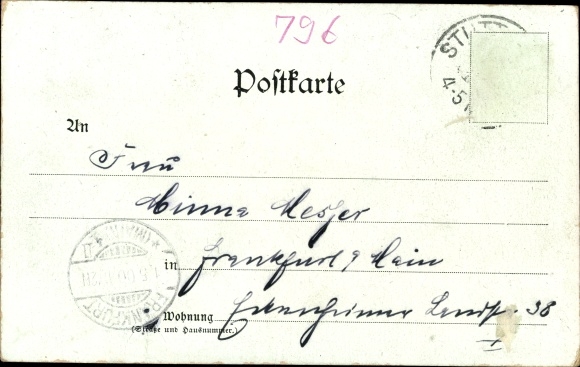 796
STUTT
4-5
Postkarte
An
Frau
Minna Metzger
in Frankfurt a Main
FRANKFURT
(MAIN)
Wohnung Eckenheimer Landstr. 38
(Straße und Hausnummer.)
I